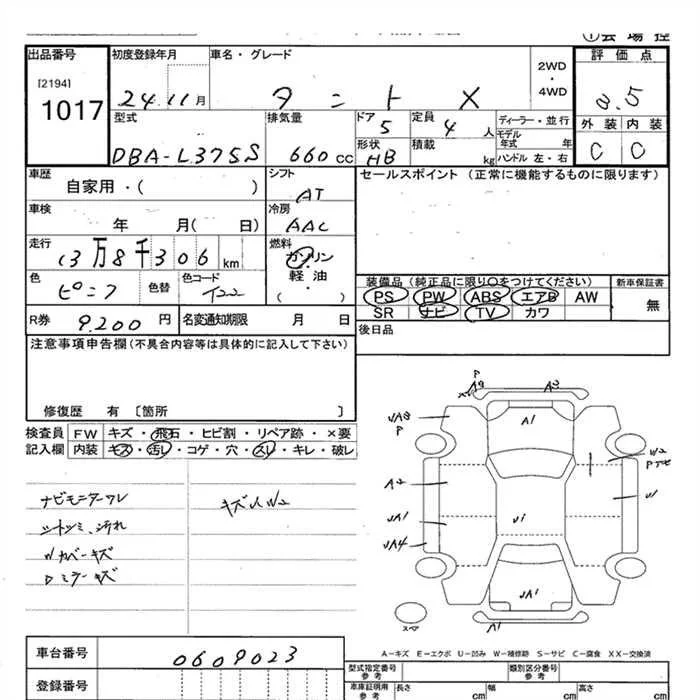 ①会場控
出品番号 初度登録年月 車名・グレード 2WD・4WD 評価点
[2194]
1017 24.11月 タント X 3.5
型式 排気量 ドア 5 定員 4人 ディーラー・並行 外装 内装
DBA-L375S 660cc 形状 HB 積載 kg モデル年式 年 ハンドル 左・右 C C
車歴 自家用・( ) シフト AT セールスポイント (正常に機能するものに限ります)
車検 年 月( 日) 冷房 AAC
走行 13万8千306km 燃料 ガソリン・軽・油・( )
色 ピンク 色替 色コード
装備品 (純正品に限り○をつけてください) 新車保証書
PS PW ABS エアB AW 無
SR ナビ TV カワ
R券 9,200円 名変通知期限 月 日 後日品
注意事項申告欄 (不具合内容等は具体的に記入して下さい)
修復歴 有 [箇所 ]
検査員記入欄 FW キズ・飛石・ヒビ割・リペア跡・×要
内装 キズ・汚レ・コゲ・穴・スレ・キレ・破レ
ナビモニターワレ
シートシミ、汚れ
Wカバーキズ
Dミラーキズ
P
A2
A1
UA3
P
W2
A2
W
UA1
UA4
UA1
A1
スペア
A-キズ E-エクボ U-凹み W-補修跡 S-サビ C-腐食 XX-交換済
車台番号 0609023
登録番号
型式指定番号 参考 類別区分番号 参考
車庫証明用 参考 長さ cm 幅 cm 高さ cm